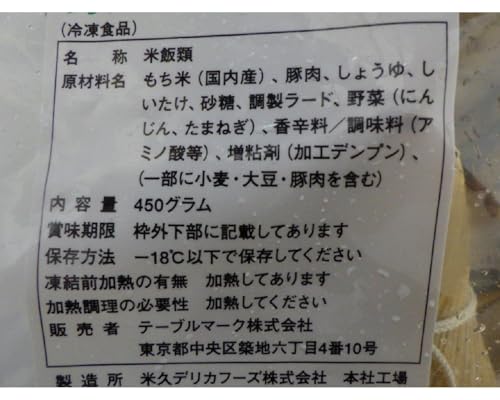 (冷凍食品)
名 称 米飯類
原材料名 もち米(国内産)、豚肉、しょうゆ、し
いたけ、砂糖、調製ラード、野菜(にん
じん、たまねぎ)、香辛料／調味料(ア
ミノ酸等)、増粘剤(加工デンプン)、
(一部に小麦・大豆・豚肉を含む)
内 容 量 450グラム
賞味期限 枠外下部に記載してあります
保存方法 −18℃以下で保存してください
凍結前加熱の有無 加熱してあります
加熱調理の必要性 加熱してください
販 売 者 テーブルマーク株式会社
東京都中央区築地六丁目4番10号
製 造 所 米久デリカフーズ株式会社 本社工場